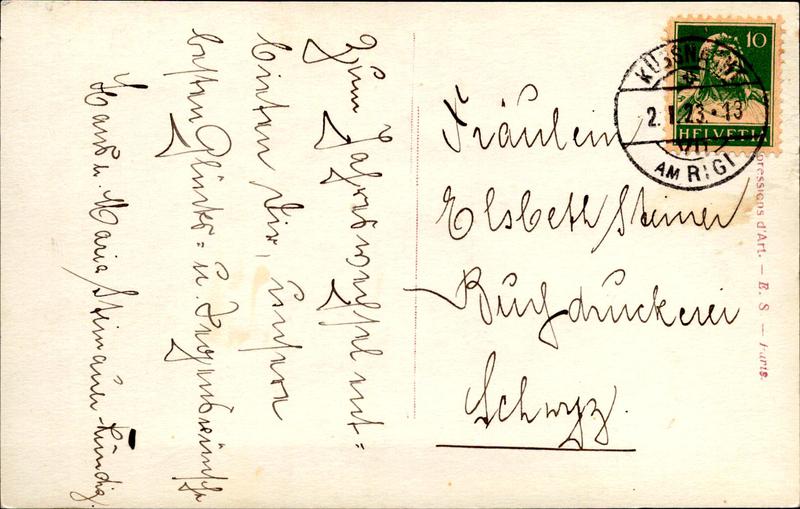 Zum Jahreswechsel ent=
bieten Dir, unsere
besten Glücks= u. Segenswünsche
Hans u. Maria
Fräulein
Elsbeth Steiner
Buchdruckerei
Schwyz.
10
HELVETIA
KÜSSNACHT
2.I.23.-13
AM RIGI
pressions d'Art. — E. S. — Paris.